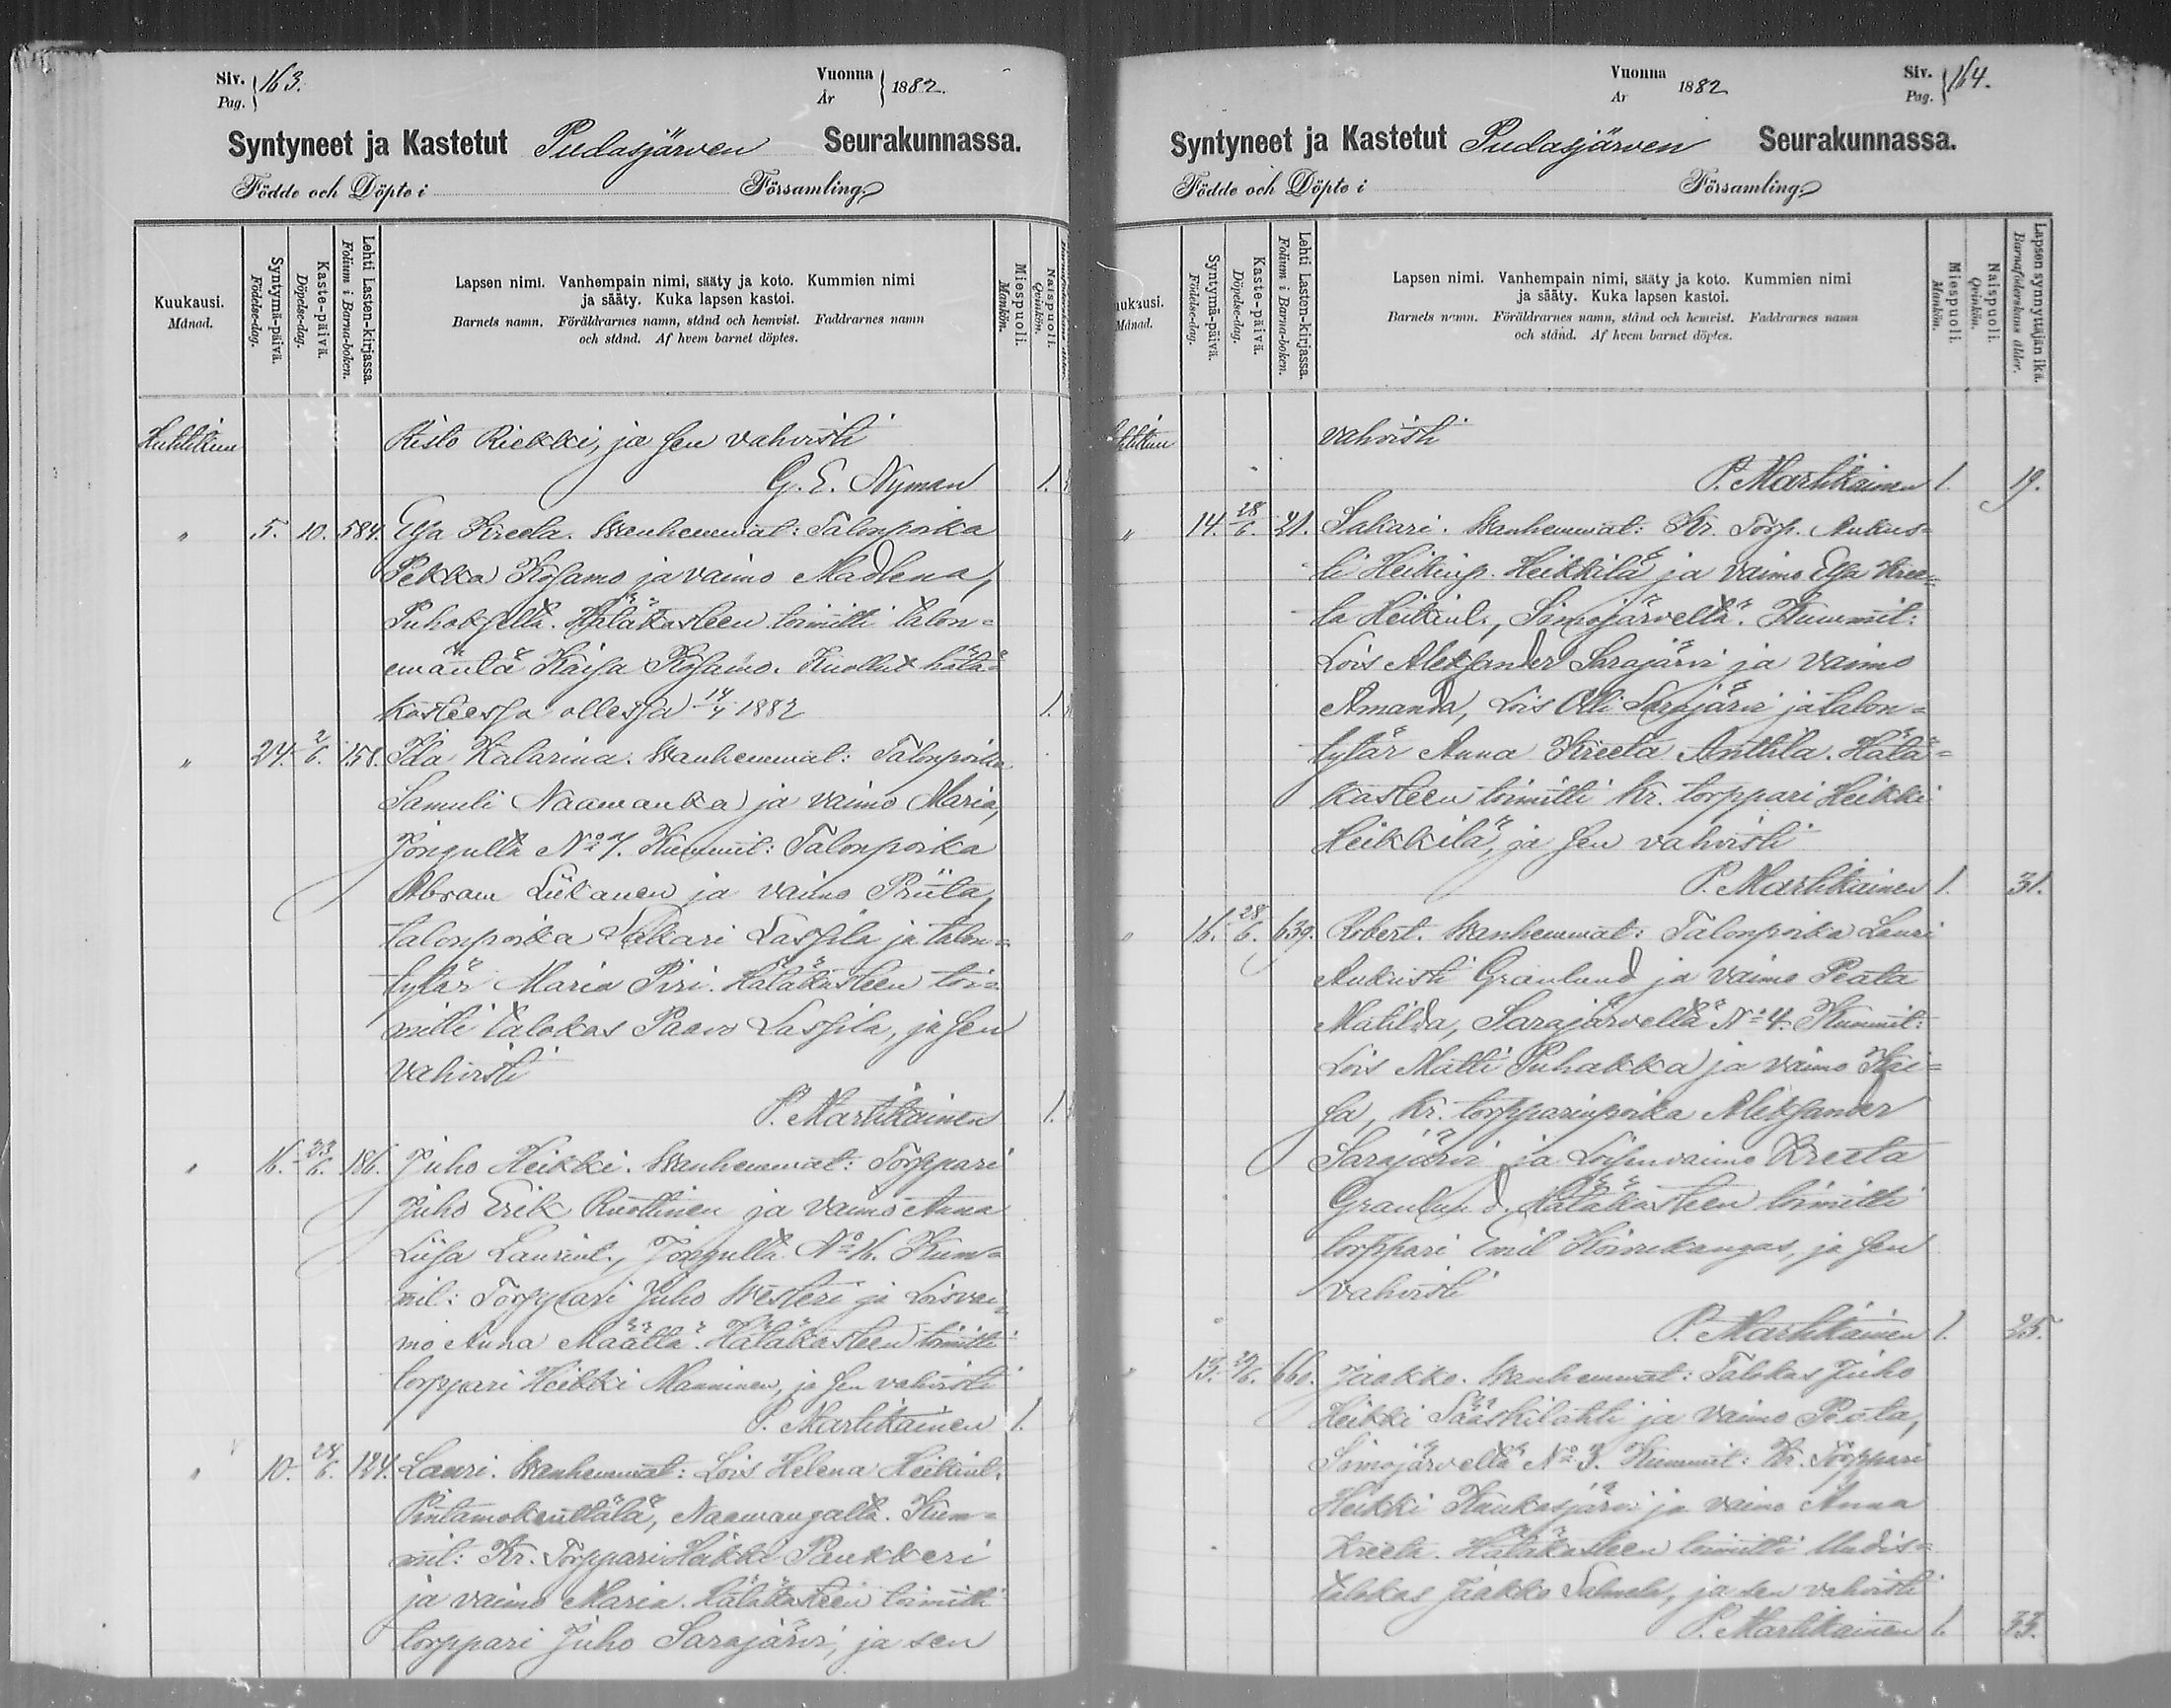 Siv. Pag. } 163.
Vuonna År } 1882.
Syntyneet ja Kastetut Pudasjärven Seurakunnassa.
Födde och Döpte i Församling.
Kuukausi. Månad.
Syntymä-päivä. Födelse-dag.
Kaste-päivä. Döpelse-dag.
Lehti Lasten-kirjassa. Folium i Barna-boken.
Lapsen nimi. Vanhempain nimi, sääty ja koto. Kummien nimi
ja sääty. Kuka lapsen kastoi.
Barnets namn. Föräldrarnes namn, stånd och hemvist. Faddrarnes namn
och stånd. Af hvem barnet döptes.
Miespuoli. Mankön.
Naispuoli. Qvinkön.
Huhtikuu Risto Riekki, ja sen vahvisti
G. E. Nyman 1.
" 5. 10. 584. Elsa Kreeta. Wanhemmat: Talonpoika
Pekka Kosamo ja vaimo Madlena,
Puhoksella. Hätäkasteen toimitti talon=
emäntä Kaisa Kosamo. Kuollut hätä=
kasteessa ollessa 14/4 1882 1.
" 24. 2/6. 158. Ida Katarina. Wanhemmat: Talonpoika
Samuli Naamanka ja vaimo Maria,
Jongulta No 7. Kummit: Talonpoika
Abram Liikanen ja vaimo Priita,
talonpoika Sakari Lassila ja talon=
tytär Maria Piri. Hätäkasteen toi=
mitti talokas Paavo Lassila, ja sen
vahvisti
P. Martikainen 1.
" 16. 23/6. 186. Juho Heikki. Wanhemmat: Torppari
Juho Erik Ruottinen ja vaimo Anna
Liisa Laurint., Jongulta No 16. Kum=
mit: Torppari Juho Westeri ja Loisvai=
mo Anna Määttä. Hätäkasteen toimitti
torppari Heikki Manninen, ja sen vahvisti
P. Martikainen 1.
" 10. 24/6. 124. Lauri. Wanhemmat: Lois Helena Heikint.
Pintamokenttälä, Naamangalta. Kum=
mit: Kr. Torppari Heikki Paukkeri
ja vaimo Maria. Hätäkasteen toimitti
torppari Juho Sarajärvi, ja sen
Vuonna År 1882
Siv. Pag. } 164.
Syntyneet ja Kastetut Pudasjärven Seurakunnassa.
Födde och Döpte i Församling.
Kuukausi. Månad.
Syntymä-päivä. Födelse-dag.
Kaste-päivä. Döpelse-dag.
Lehti Lasten-kirjassa. Folium i Barna-boken.
Lapsen nimi. Vanhempain nimi, sääty ja koto. Kummien nimi
ja sääty. Kuka lapsen kastoi.
Barnets namn. Föräldrarnes namn, stånd och hemvist. Faddrarnes namn
och stånd. Af hvem barnet döptes.
Miespuoli. Mankön.
Naispuoli. Qvinkön.
Lapsen synnyttäjän ikä. Barnaföderskans ålder.
Huhtikuu vahvisti
P. Martikainen 1. 19.
" 14. 28/6. 21. Sakari. Wanhemmat: Kr. Torp. Aukus=
ti Heikinp. Heikkilä ja vaimo Elsa Kree=
ta Heikint., Simojärveltä. Kummit:
Lois Aleksander Sarajärvi ja vaimo
Amanda, Lois Olli Sarajärvi ja talon=
tytär Anna Kreeta Anttila. Hätä=
kasteen toimitti kr. torppari Heikki
Heikkilä, ja sen vahvisti
P. Martikainen 1. 31.
" 16. 28/6. 639. Robert. Wanhemmat: Talonpoika Lauri
Aukusti Granlund ja vaimo Peata
Matilda, Sarajärveltä No 4. Kummit:
Lois Matti Puhakka ja vaimo Kai=
sa, kr. torpparinpoika Aleksander
Sarajärvi ja Loisenvaimo Kreeta
Granlund. Hätäkasteen toimitti
torppari Emil Koivukangas, ja sen
vahvisti
P. Martikainen 1. 25.
" 13. 29/6. 660. Jaakko. Wanhemmat: Talokas Juho
Heikki Sääskilahti ja vaimo Peata,
Simojärveltä No 3. Kummit: Kr. Torppari
Heikki Kaukasjärvi ja vaimo Anna
Kreeta. Hätäkasteen toimitti Uudis=
talokas Jaakko Salmela, ja sen vahvisti
P. Martikainen 1. 33.